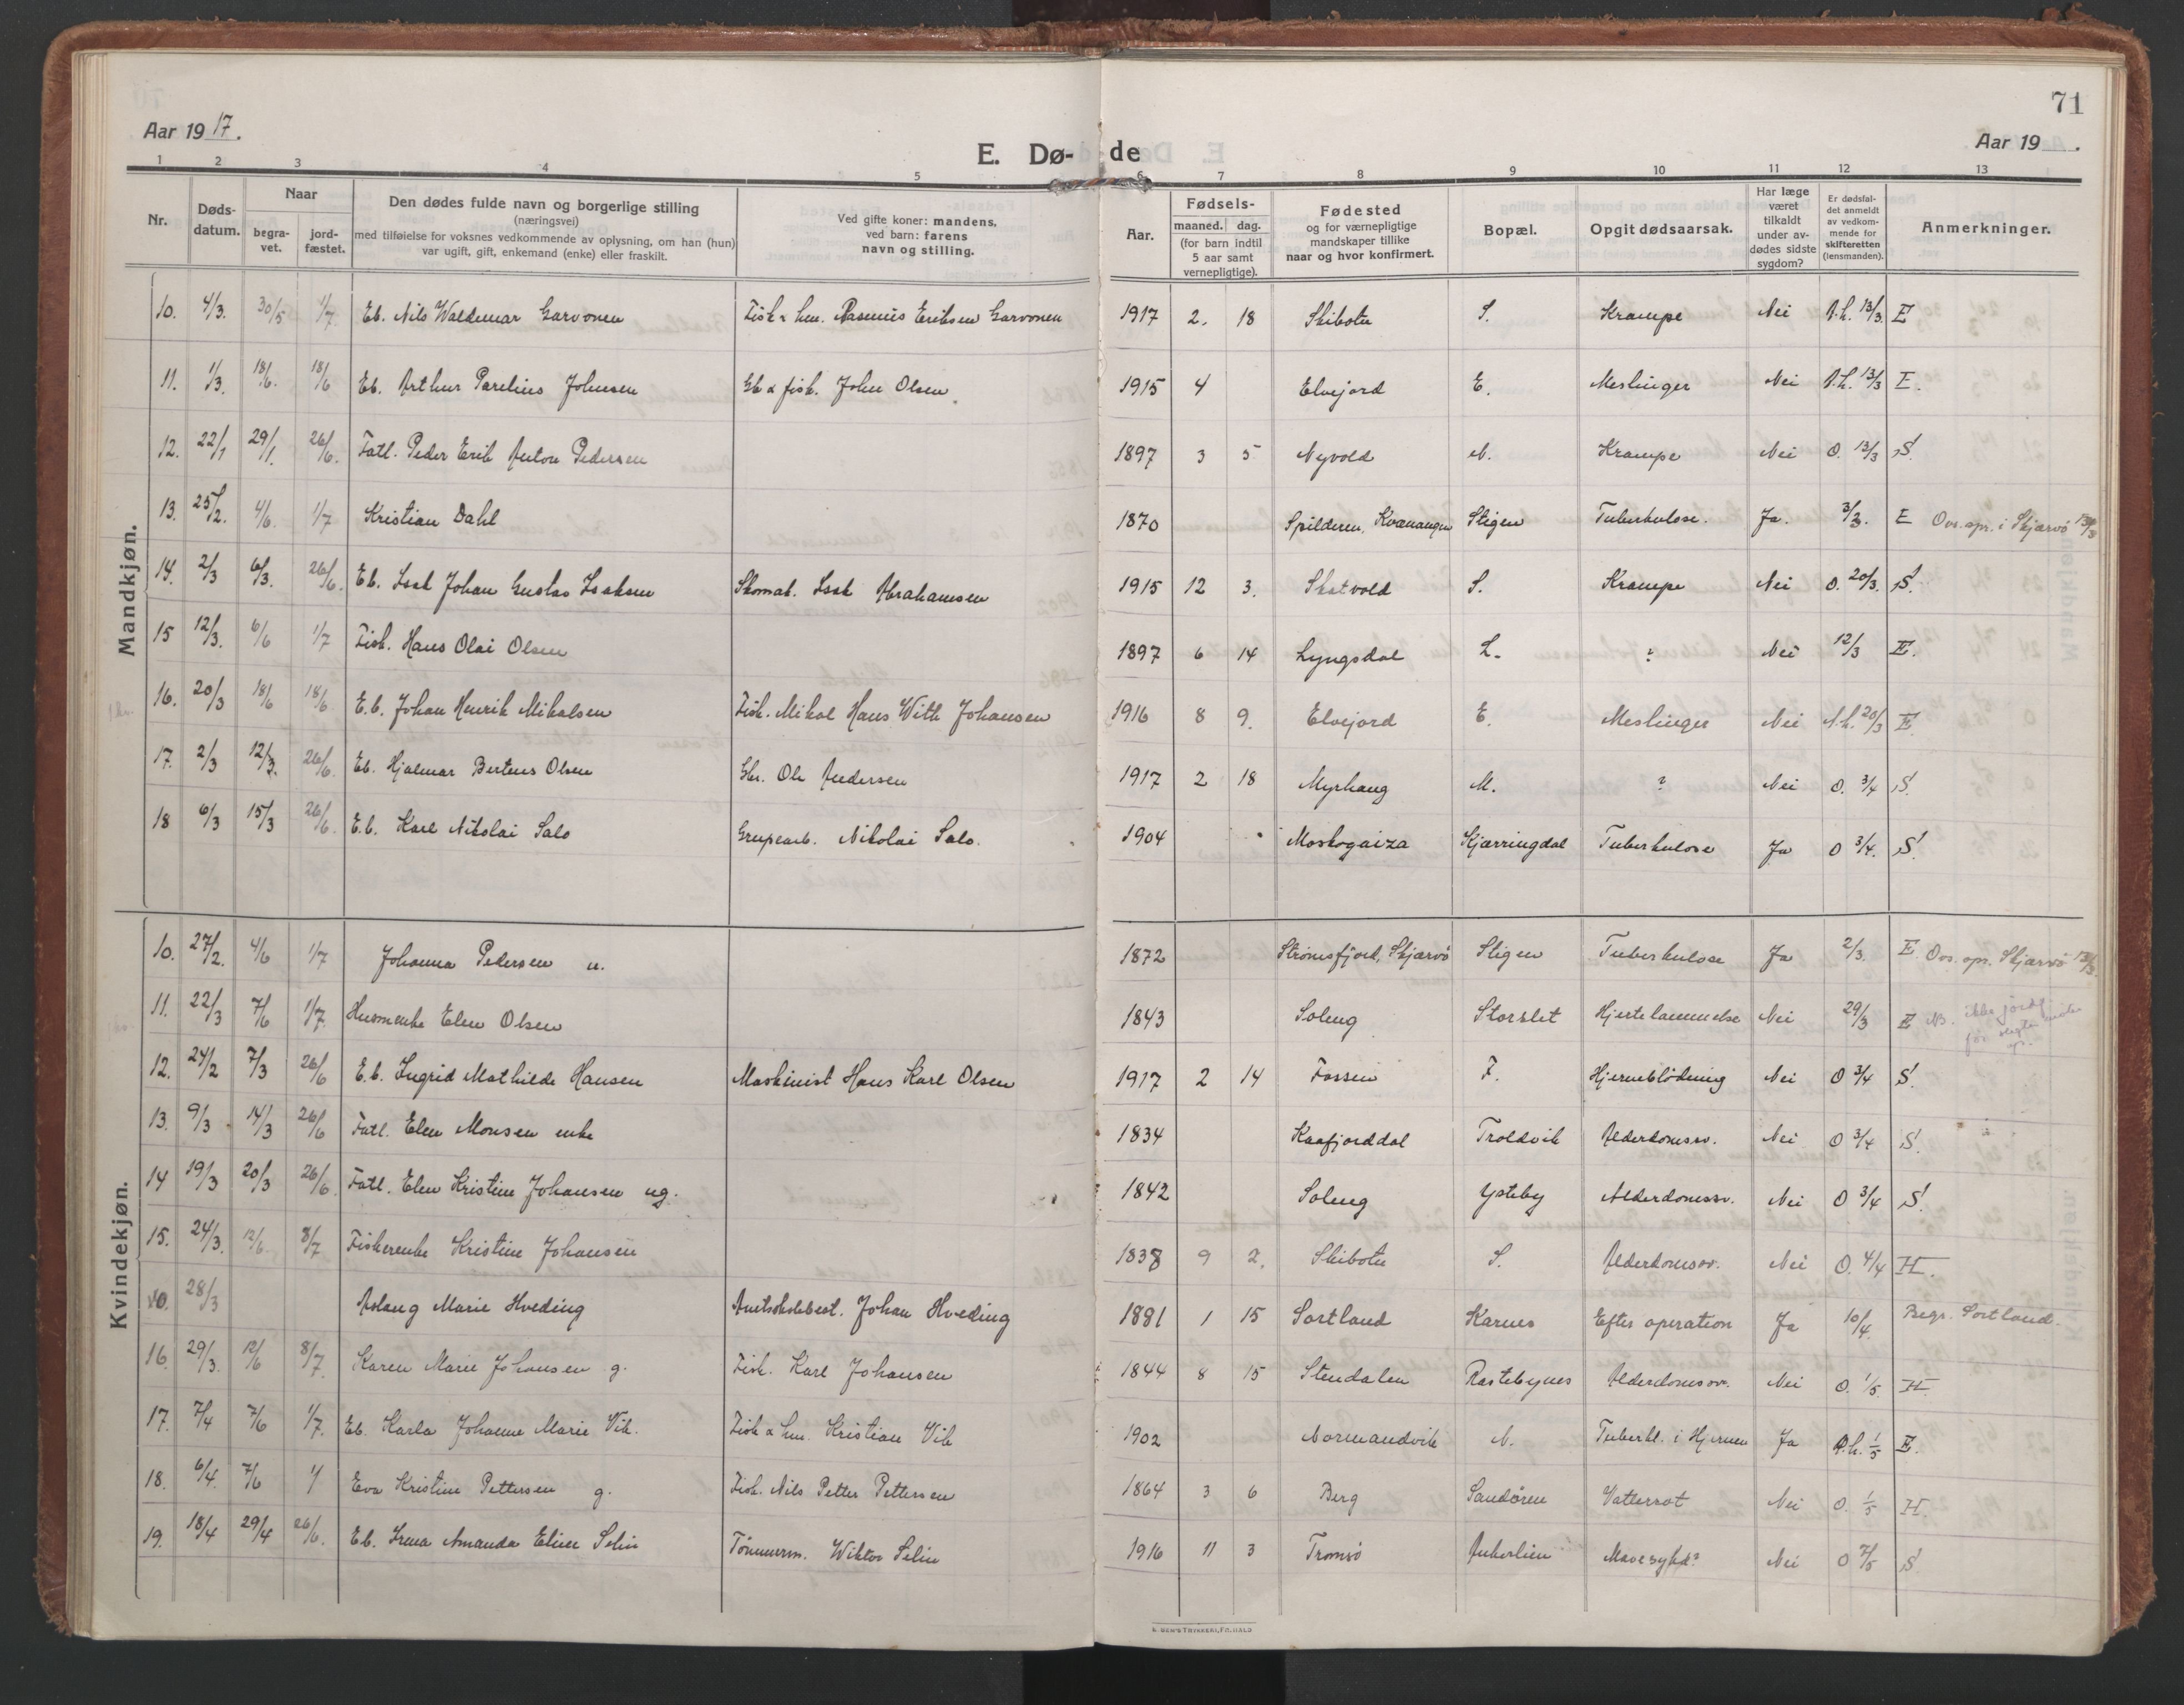 71
Aar 1917.
Aar 19 .
E. Dø- de
1 2 3 4 5 6 7 8 9 10 11 12 13
Nr.
Døds-
datum.
Naar
begra-
vet.
jord-
fæstet.
Den dødes fulde navn og borgerlige stilling
(næringsvei)
med tilføielse for voksnes vedkommende av oplysning, om han (hun)
var ugift, gift, enkemand (enke) eller fraskilt.
Ved gifte koner: mandens,
ved barn: farens
navn og stilling.
Aar.
Fødsels-
maaned. dag.
(for barn indtil
5 aar samt
vernepligtige).
Fødested
og for værnepligtige
mandskaper tillike
naar og hvor konfirmert.
Bopæl.
Opgit dødsaarsak.
Har læge
været
tilkaldt
under av-
dødes sidste
sygdom?
Er dødsfal-
det anmeldt
av vedkom-
mende for
skifteretten
(lensmanden).
Anmerkninger.
Mandkjøn.
10. 4/3. 30/5 1/7 Eb. Nils Waldemar Garvonen Fisk & hm. Rasmus Eriksen Garvonen 1917 2. 18 Skibotn S. Krampe Nei A.h. 13/3. E
11. 1/3. 18/6. 18/6 Eb. Arthur Parelius Johnsen Gb & fisk. John Olsen 1915 4 Elvejord E. Meslinger Nei A.h. 13/3 E.
12. 22/1 29/1. 26/6. Fatl. Peder Erik Anton Pedersen 1897 3 5 Nyvold N. Krampe Nei O. 13/3 S.
13. 25/2. 4/6. 1/7 Kristian Dahl 1870 Spilderen, Kvænangen Stigen Tuberkulose. Ja. 3/3. E Ovs. opr. i Skjærvö 13/3
14. 2/3 6/3. 26/6. Eb. Isak Johan Gustav Isaksen Skomak. Isak Abrahamsen 1915 12 3. Skatvold S. Krampe Nei O. 20/3. S.
15 12/3. 6/6 1/7 Fisk. Hans Olai Olsen 1897 6 14 Lyngsdal L. ? Nei 12/3 E.
16. 20/3 18/6 18/6. E.b. Johan Henrik Mikalsen Fisk. Mikal Hans With Johansen 1916 8 9. Elvejord E. Meslinger Nei A.h. 20/3 E
17. 2/3 12/3. 26/6. Eb. Hjalmar Berteus Olsen Gbr. Ole Andersen 1917 2 18 Myrhaug M. ? Nei O. 3/4 S.
18 6/3 15/3 26/6. E.b. Karl Nikolai Salo Grupearb. Nikolai Salo. 1904 Moskogaiza Kjærringdal Tuberkulose Ja O 3/4. S.
Kvindekjøn.
10. 27/2. 4/6 1/7 Johanna Pedersen u. 1872 Strömsfjord, Skjærvö Stigen Tuberkulose Ja 2/3. E Ovs. opr. Skjærvö 13/3
11. 22/3 7/6 1/7. Husmenke Elen Olsen 1843 Soleng Storslet Hjertelammelse Nei 29/3 E NB. ikke jordf.
12. 24/2 7/3 26/6 E.b. Ingrid Mathilde Hansen Maskinist Hans Karl Olsen 1917 2 14 Fossen F. Hjerneblödning Nei O 3/4 S.
13. 9/3 14/3 26/6 Fatl. Elen Monsen enke 1834 Kaafjorddal Troldvik Alderdomssv. Nei O 3/4 S.
14 19/3 20/3 26/6. Fatl. Elen Kristine Johansen ug. 1842 Soleng Ysteby Alderdomssv. Nei O 3/4 S.
15. 24/3. 12/6. 8/7 Fiskerenke Kristine Johansen 1838 9 2. Skibotn S. Alderdomssv. Nei O. 4/4 H.
10. 28/3 Aslaug Marie Hveding Amtsskolebest. Johan Hveding 1881 1 15 Sortland Karnes Efter operation Ja 10/4. Begr. Sortland.
16. 29/3. 12/6 8/7. Karen Marie Johansen g. Fisk. Karl Johansen 1844 8 15 Stendalen Rastebynes Alderdomssv. Nei O. 1/5. H.
17. 7/4 7/6 1/7. Eb. Karla Johanne Marie Vik. Fisk & hm. Kristian Vik 1902 Normandvik N. Tuberkl. i Hjernen Ja A.h. 1/5 E.
18. 6/4. 7/6 1/ Eva Kristine Pettersen g. Fisk. Nils Petter Pettersen 1864 3 6 Berg Sandören Vattersot Nei O. 1/5 H.
19. 18/4 29/4 26/6. Eb. Irena Amanda Eline Selin Tömmerm. Wiktor Selin 1916 11 3 Tromsö Ankerlien Mavesykd? Nei O 7/5 S.